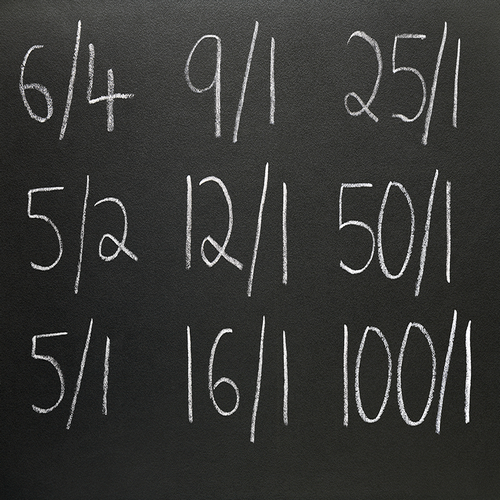 6/4 9/1 25/1
5/2 12/1 50/1
5/1 16/1 100/1